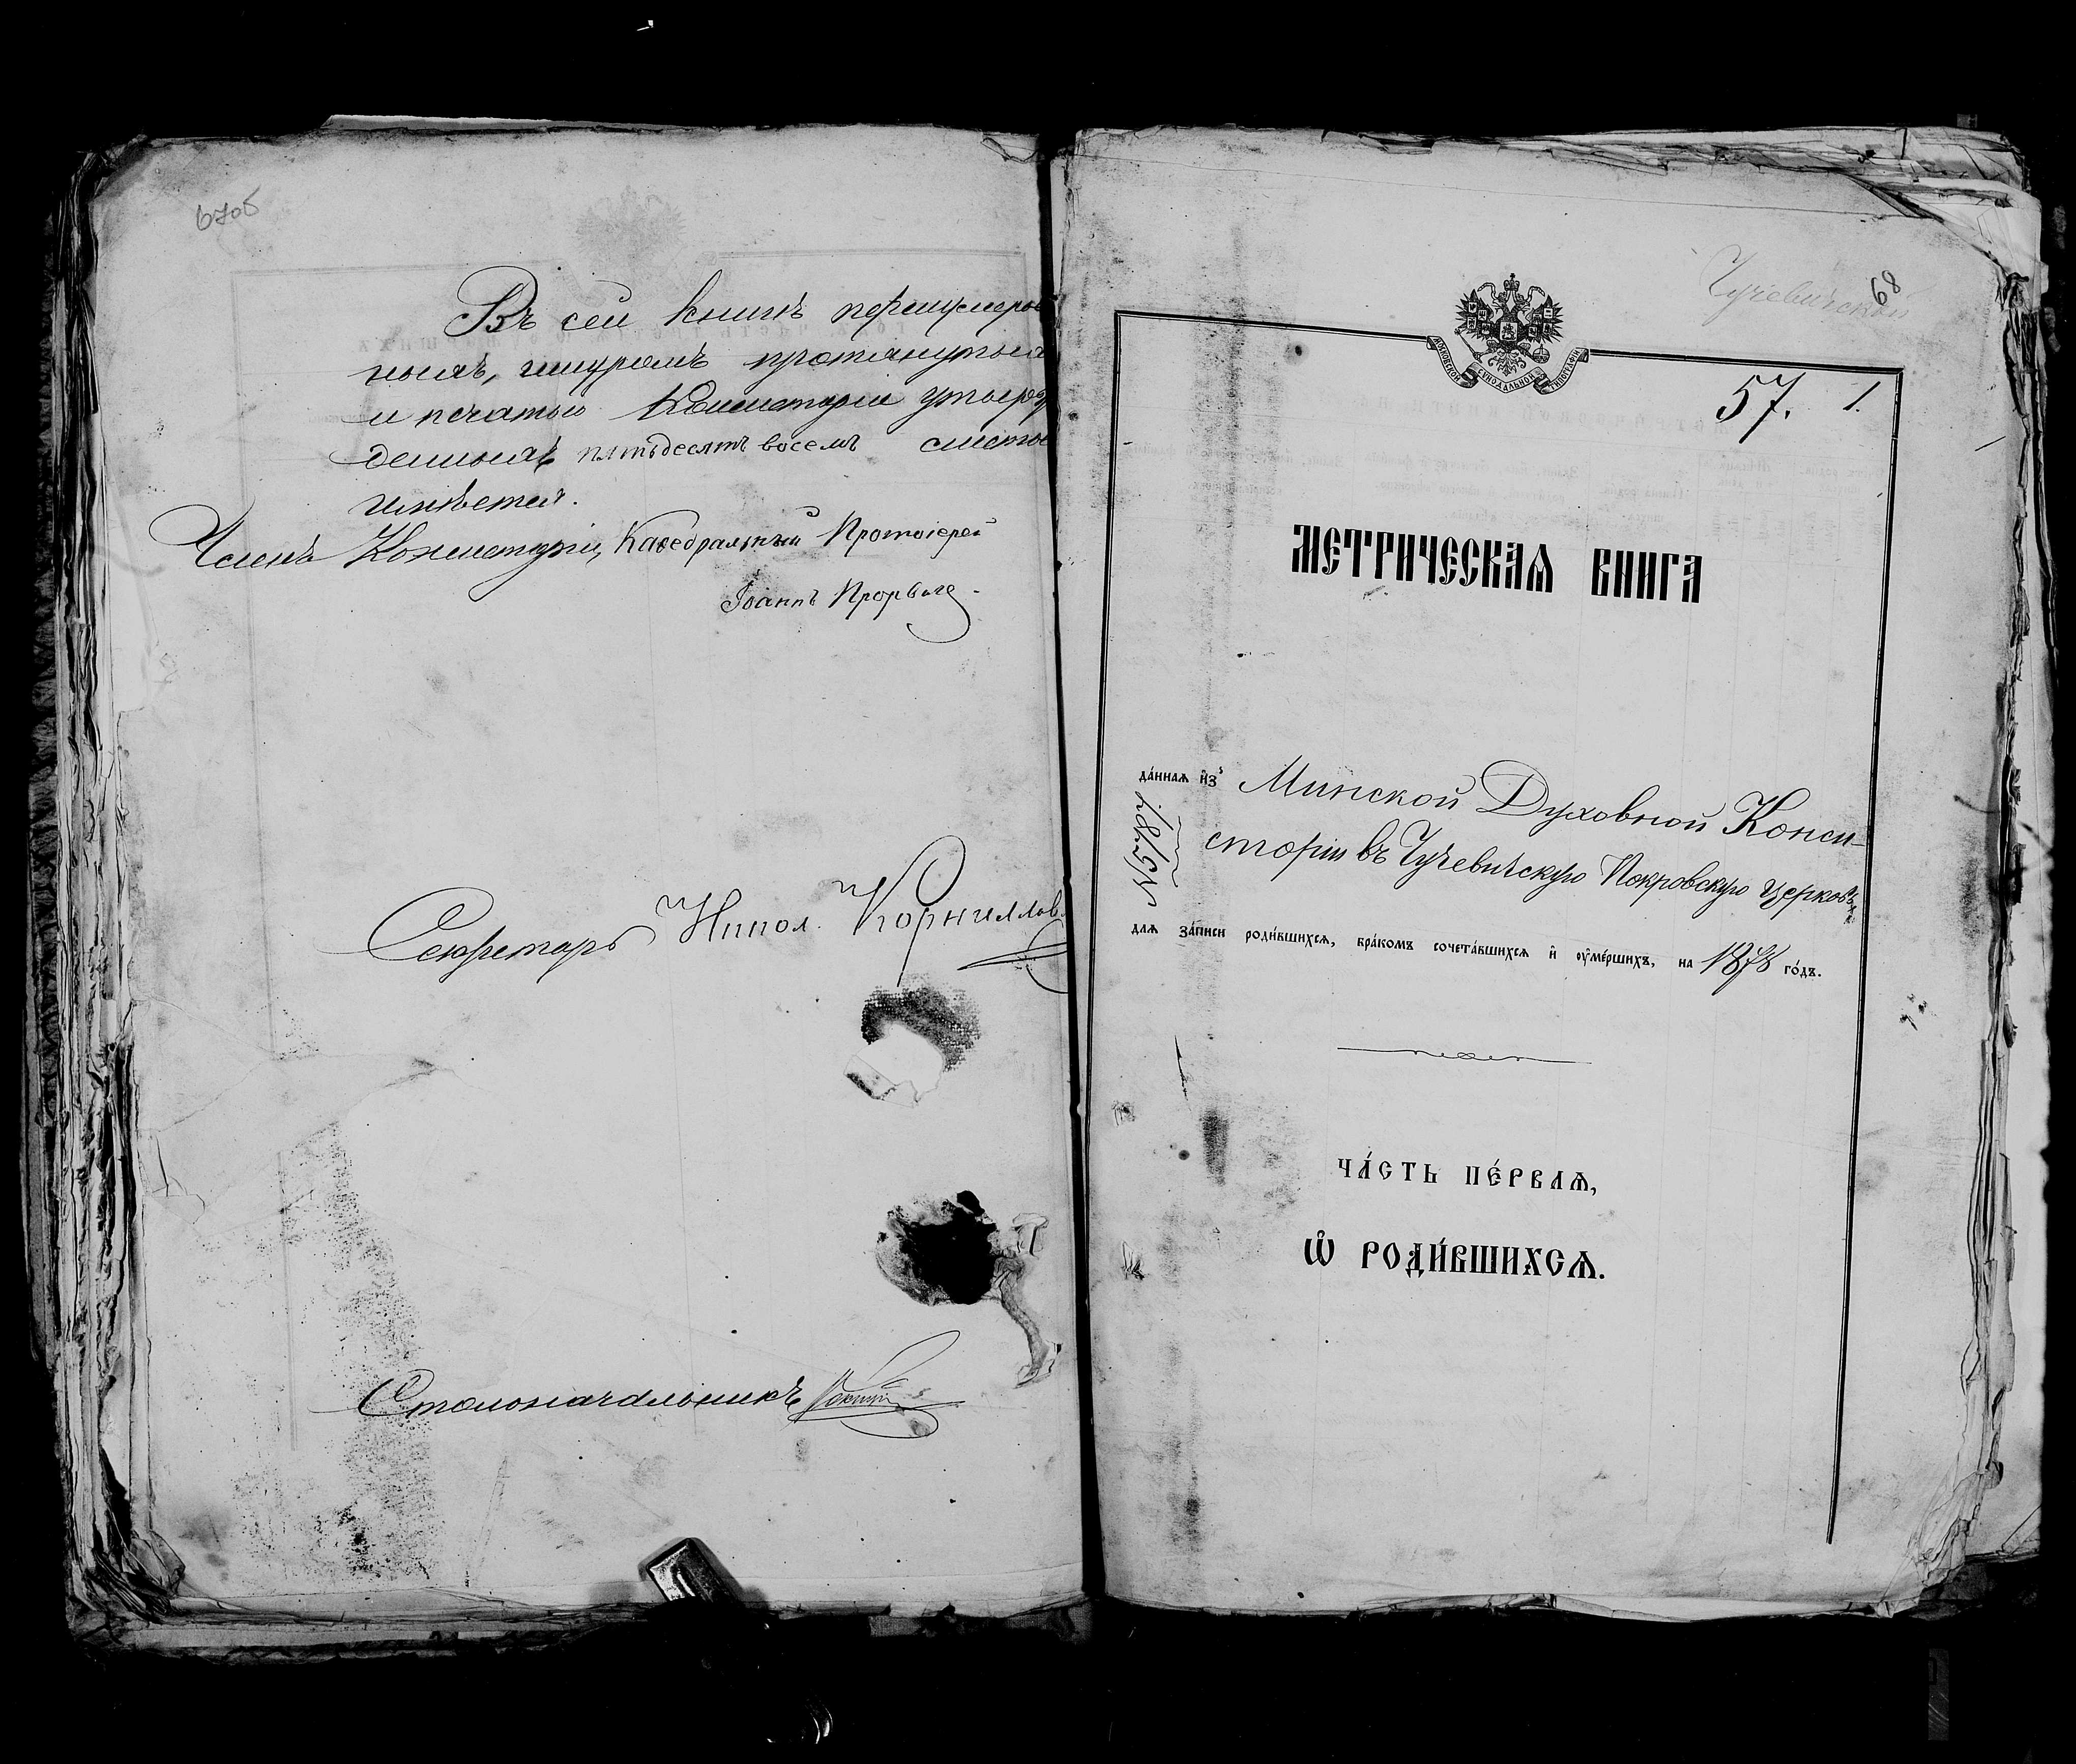 67об
Въ сей книгѣ перенумеро
ныхъ, шнуромъ протянутыхъ
и печатью Консисторіи утверж
денныхъ пятьдесятъ восемь листов
имѣется.
Членъ Консисторіи, Каѳедральный Протоіерей
Іоаннъ
Секретарь Никол. Корниллов
Столоначальникъ
Чучевичской
68
МОСКОВСКОЙ СѴНОДАЛЬНОЙ ТИПОГРАФІИ
57. 1.
МЕТРИЧЕСКАѦ КНИГА
да́ннаѧ и҆з̾ Минской Духовной Конси-
сторіи въ Чучевичскую Покровскую церковь
длѧ за́писи роди́вшихсѧ, бра́комъ сочета́вшихсѧ и҆ оу҆ме́ршихъ, на 1878 го́дъ.
ЧА́СТЬ ПЕ́РВАѦ,
Ѡ҆ РОДИ́ВШИХСѦ.